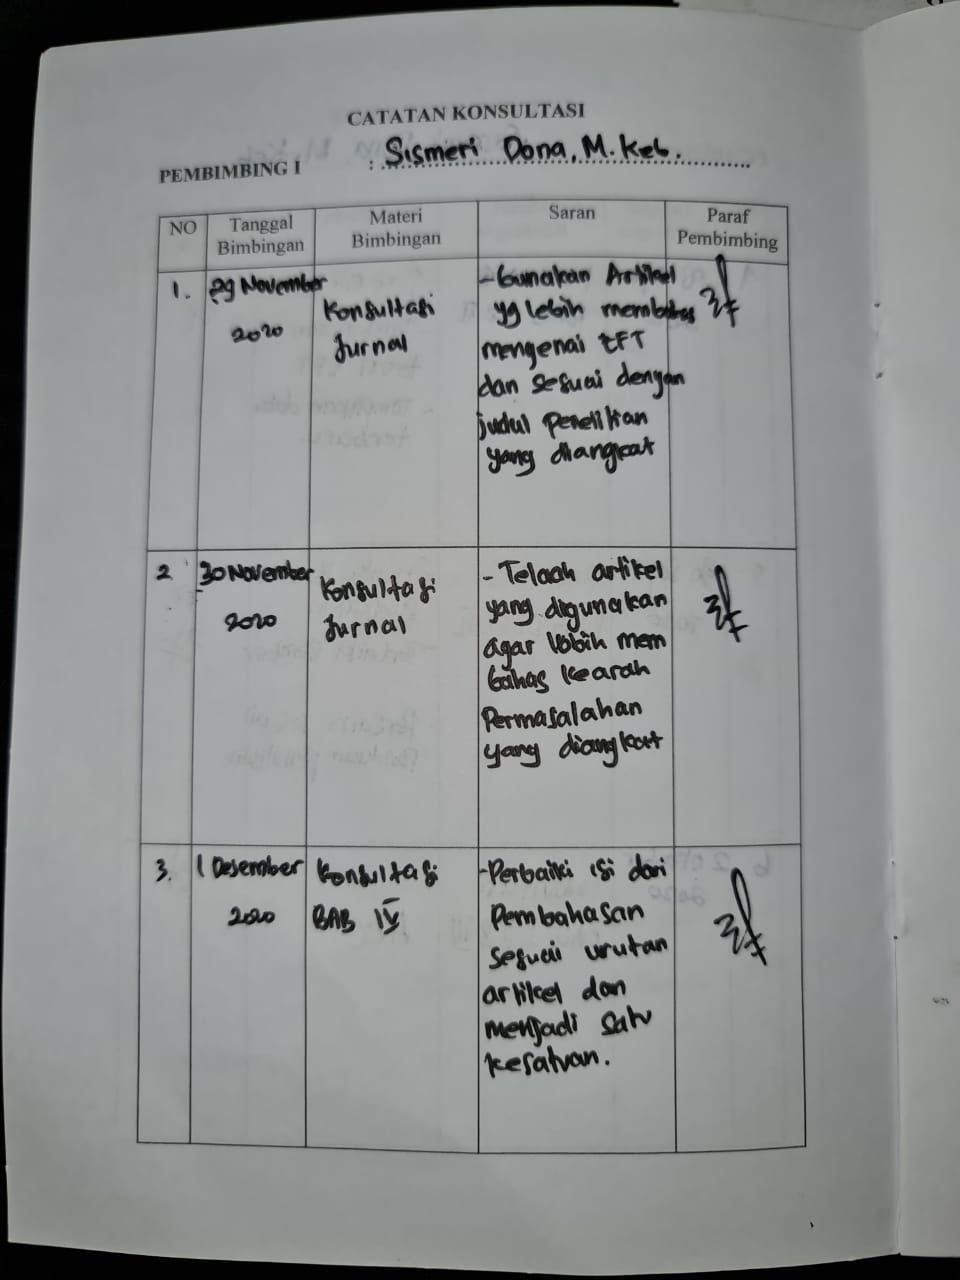 CATATAN KONSULTASI
PEMBIMBING I : Sismeri Dona, M.Keb.
NO Tanggal Bimbingan Materi Bimbingan Saran Paraf Pembimbing
1. 29 November
2020
Konsultasi
Jurnal
- Gunakan Artikel
yg lebih membahas
mengenai EFT
dan sesuai dengan
judul Penelitian
yang diangkat
2 30 November
2020
Konsultasi
Jurnal
- Telaah artikel
yang digunakan
agar lebih mem
bahas kearah
Permasalahan
yang diangkat
3. 1 Desember
2020
Konsultasi
BAB IV
- Perbaiki isi dari
Pembahasan
sesuai urutan
artikel dan
menjadi Satu
kesatuan.